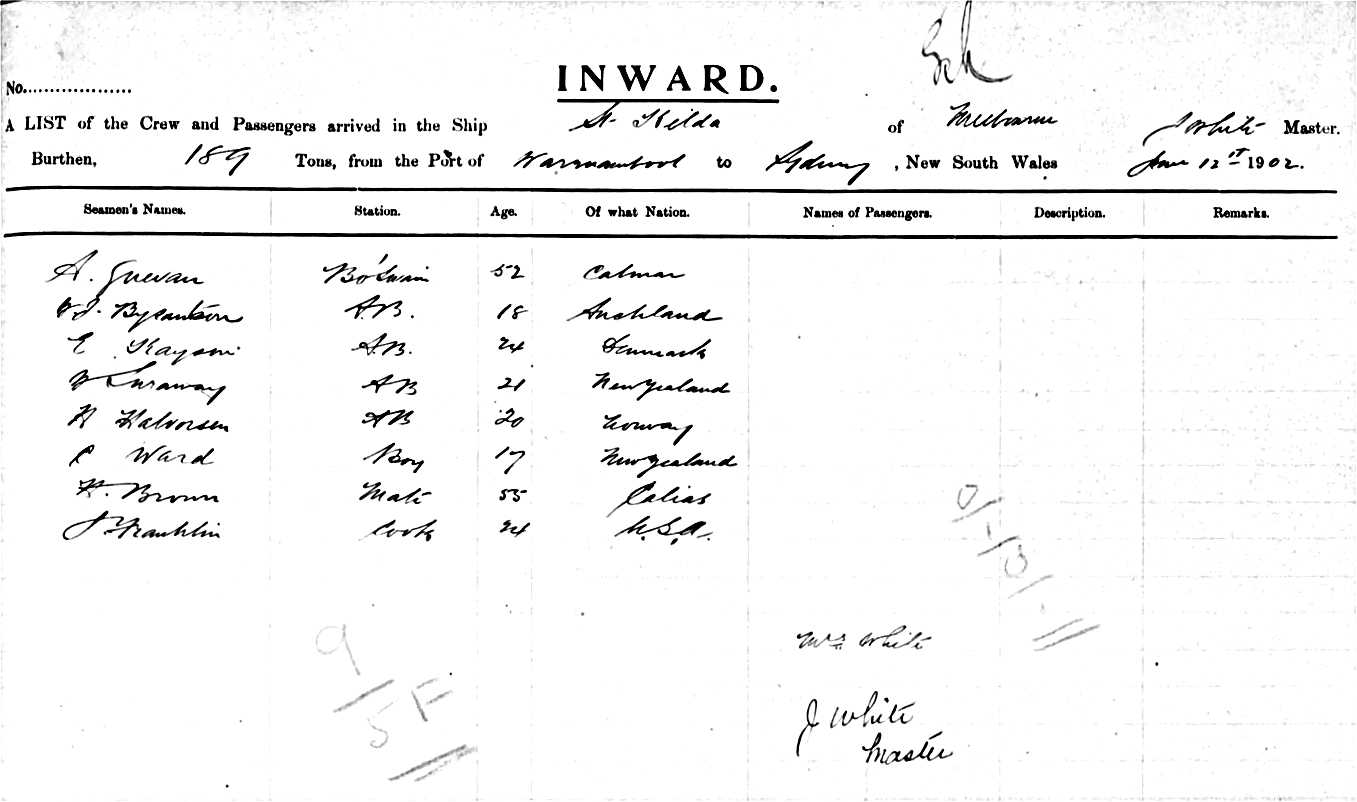 Sch
INWARD.
No...................
A LIST of the Crew and Passengers arrived in the Ship St Kilda of Melbourne J White Master.
Burthen, 189 Tons, from the Port of Warrnambool to Sydney, New South Wales June 12th 1902.
Seamen's Names. Station. Age. Of what Nation. Names of Passengers. Description. Remarks.
A. Bo'Swain 52 Calmar
A.B. 18 Auckland
E A.B. 24 Denmark
AB 21 New Zealand
H Halvorsen AB 20 Norway
C Ward Boy 17 New Zealand
H. Brown Mate 55 Calias
J Franklin Cook 24 U.S.A.
0/-131-11
Mrs White
9
5F
J White
Master